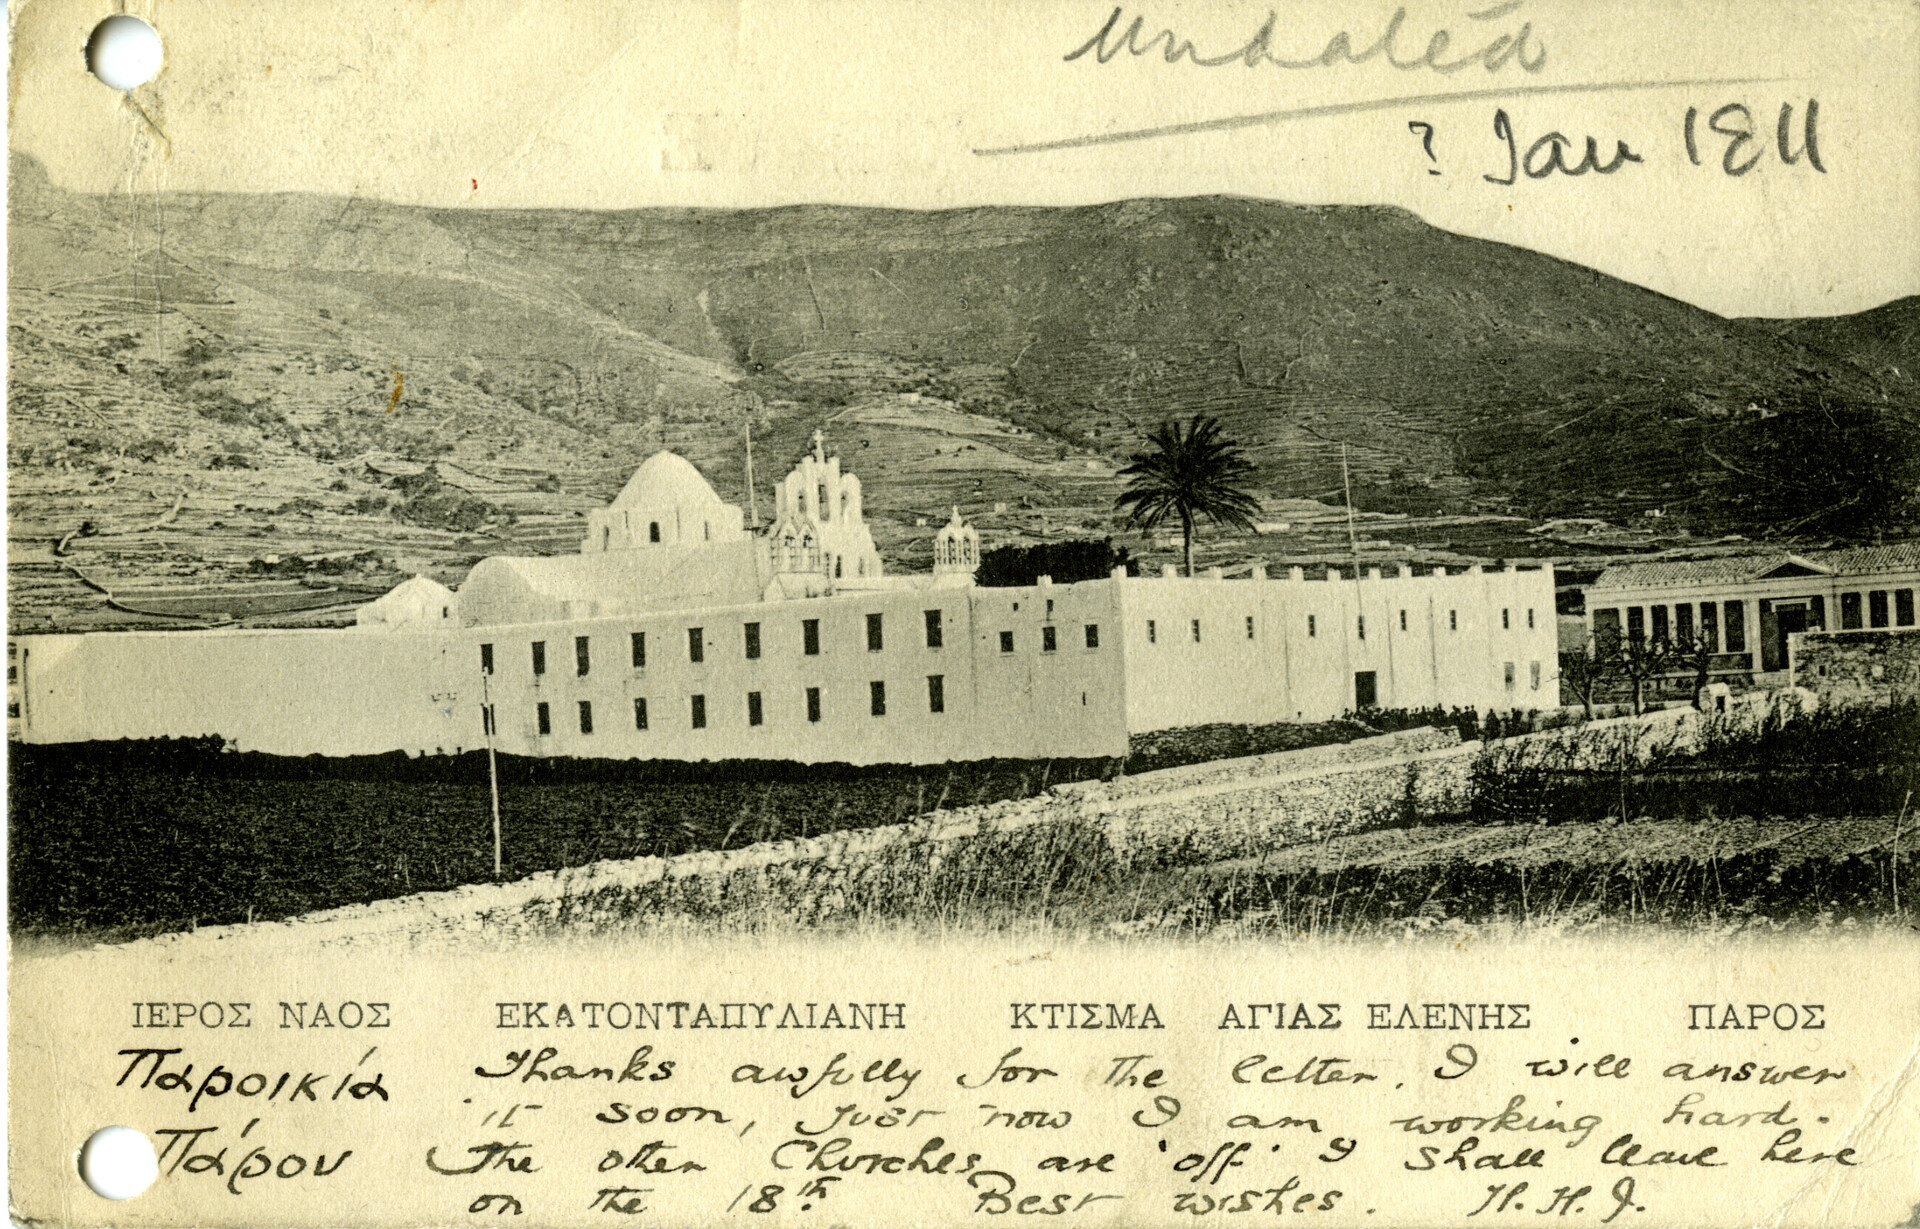 Undated
? Jan 1911
ΙΕΡΟΣ ΝΑΟΣ ΕΚΑΤΟΝΤΑΠΥΛΙΑΝΗ ΚΤΙΣΜΑ ΑΓΙΑΣ ΕΛΕΝΗΣ ΠΑΡΟΣ
Παροικία
Πάρου
Thanks awfully for the letter. I will answer
it soon, just now I am working hard.
The other Churches are 'off' I shall leave here
on the 18th. Best wishes. H. H. J.